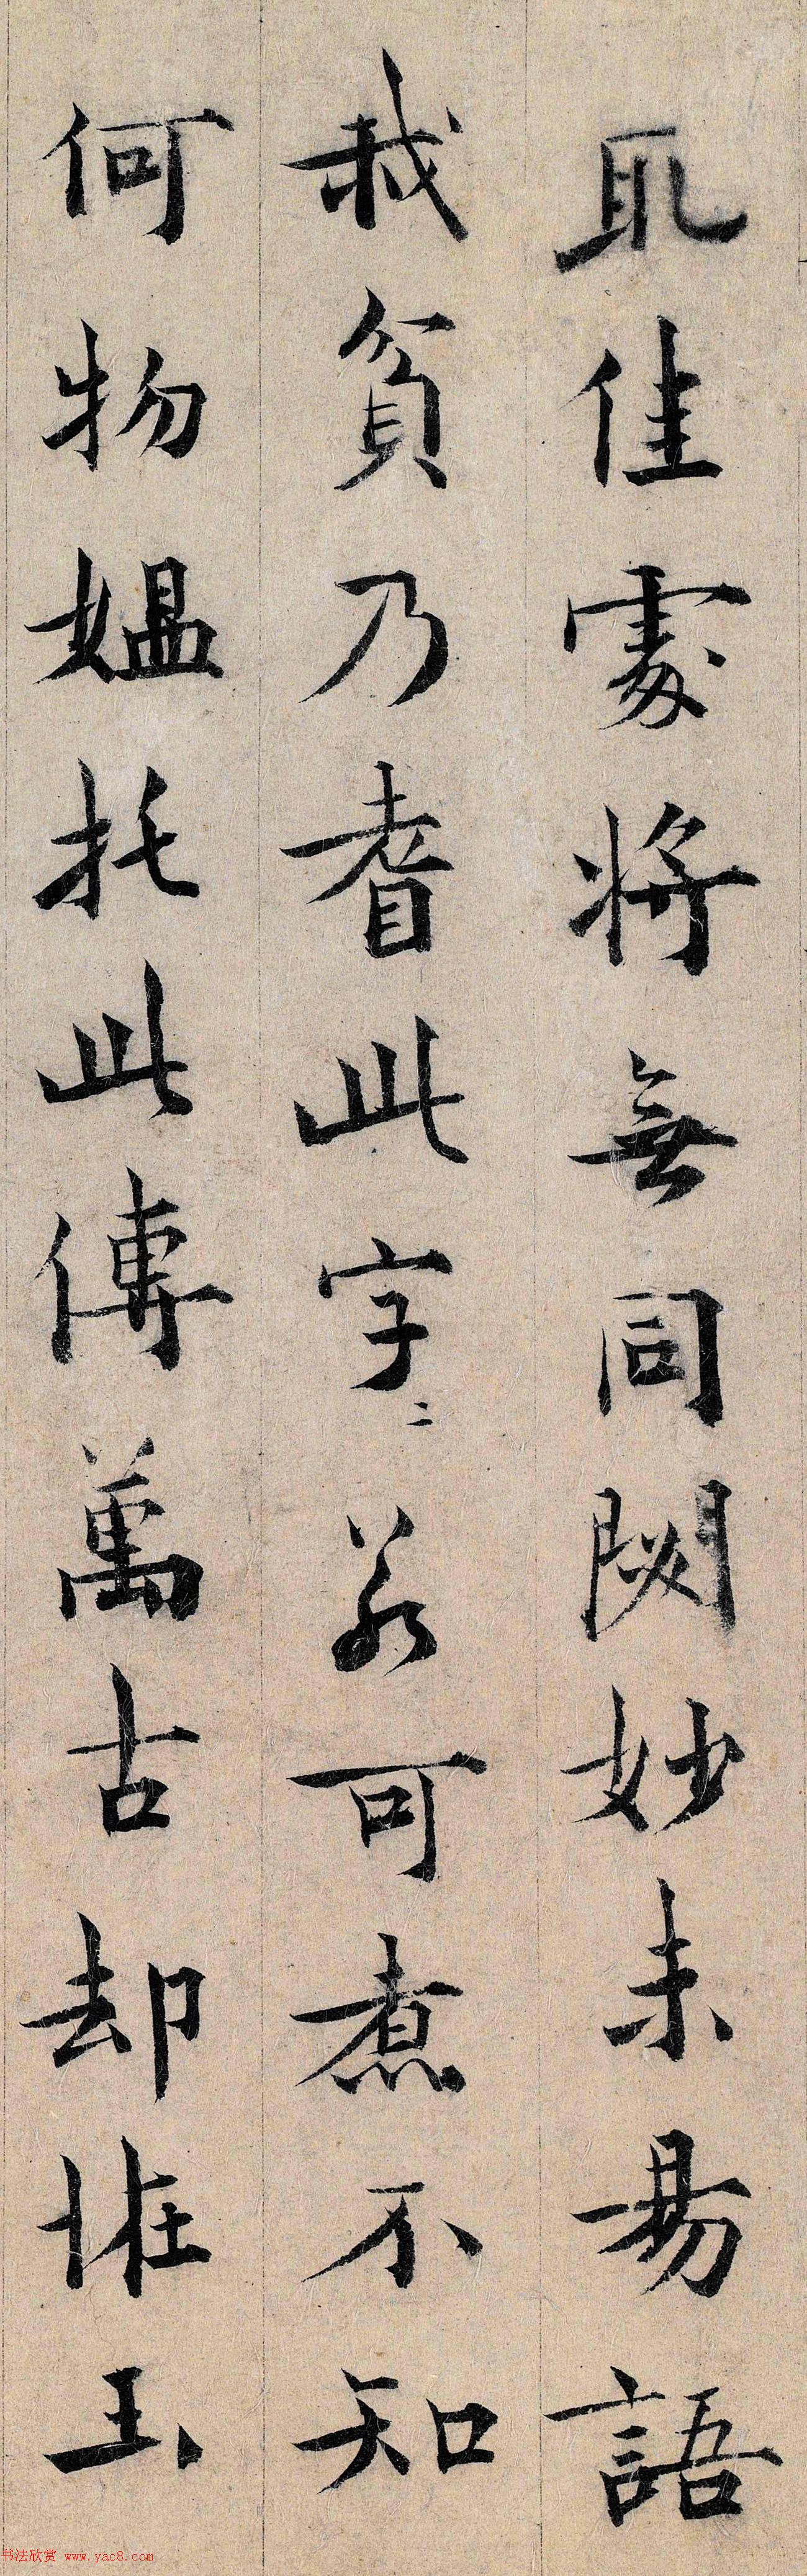 取佳處將無同妙未易語
我貧乃耆此字二若可煮不知
何物媪托此傳萬古却恠玉
书法欣赏 www.yac8.com